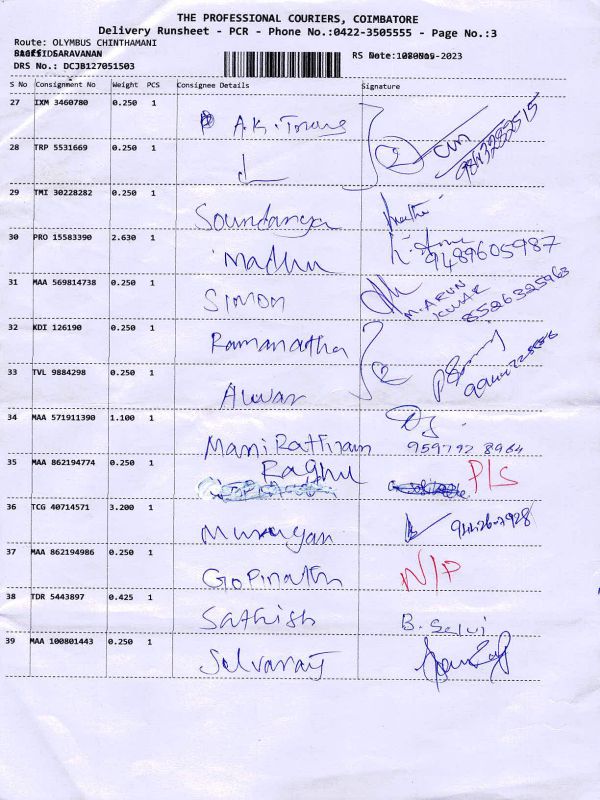 THE PROFESSIONAL COURIERS, COIMBATORE
Delivery Runsheet - PCR - Phone No.:0422-3505555 - Page No.:3
Route: OLYMBUS CHINTHAMANI
SARAVANAN
RS Date: -2023
DRS No.: DCJB127051503
S No Consignment No Weight PCS Consignee Details Signature
27 IXM 3460780 0.250 1
A.K.
28 TRP 5531669 0.250 1
9843282515
29 TMI 30228282 0.250 1
Soundarya
30 PRO 15583390 2.630 1
Madhu 9489605987
31 MAA 569814738 0.250 1
Simon M. ARUN KUMAR 8526325963
32 KDI 126190 0.250 1
Ramanatha
33 TVL 9884298 0.250 1
Alwar
34 MAA 571911390 1.100 1
Mani Rathinam 959792 8964
35 MAA 862194774 0.250 1
Raghu P/S
36 TCG 40714571 3.200 1
Murugan
37 MAA 862194986 0.250 1
Gopinath N/P
38 TDR 5443897 0.425 1
Sathish B. Selvi
39 MAA 100801443 0.250 1
Selvaraj